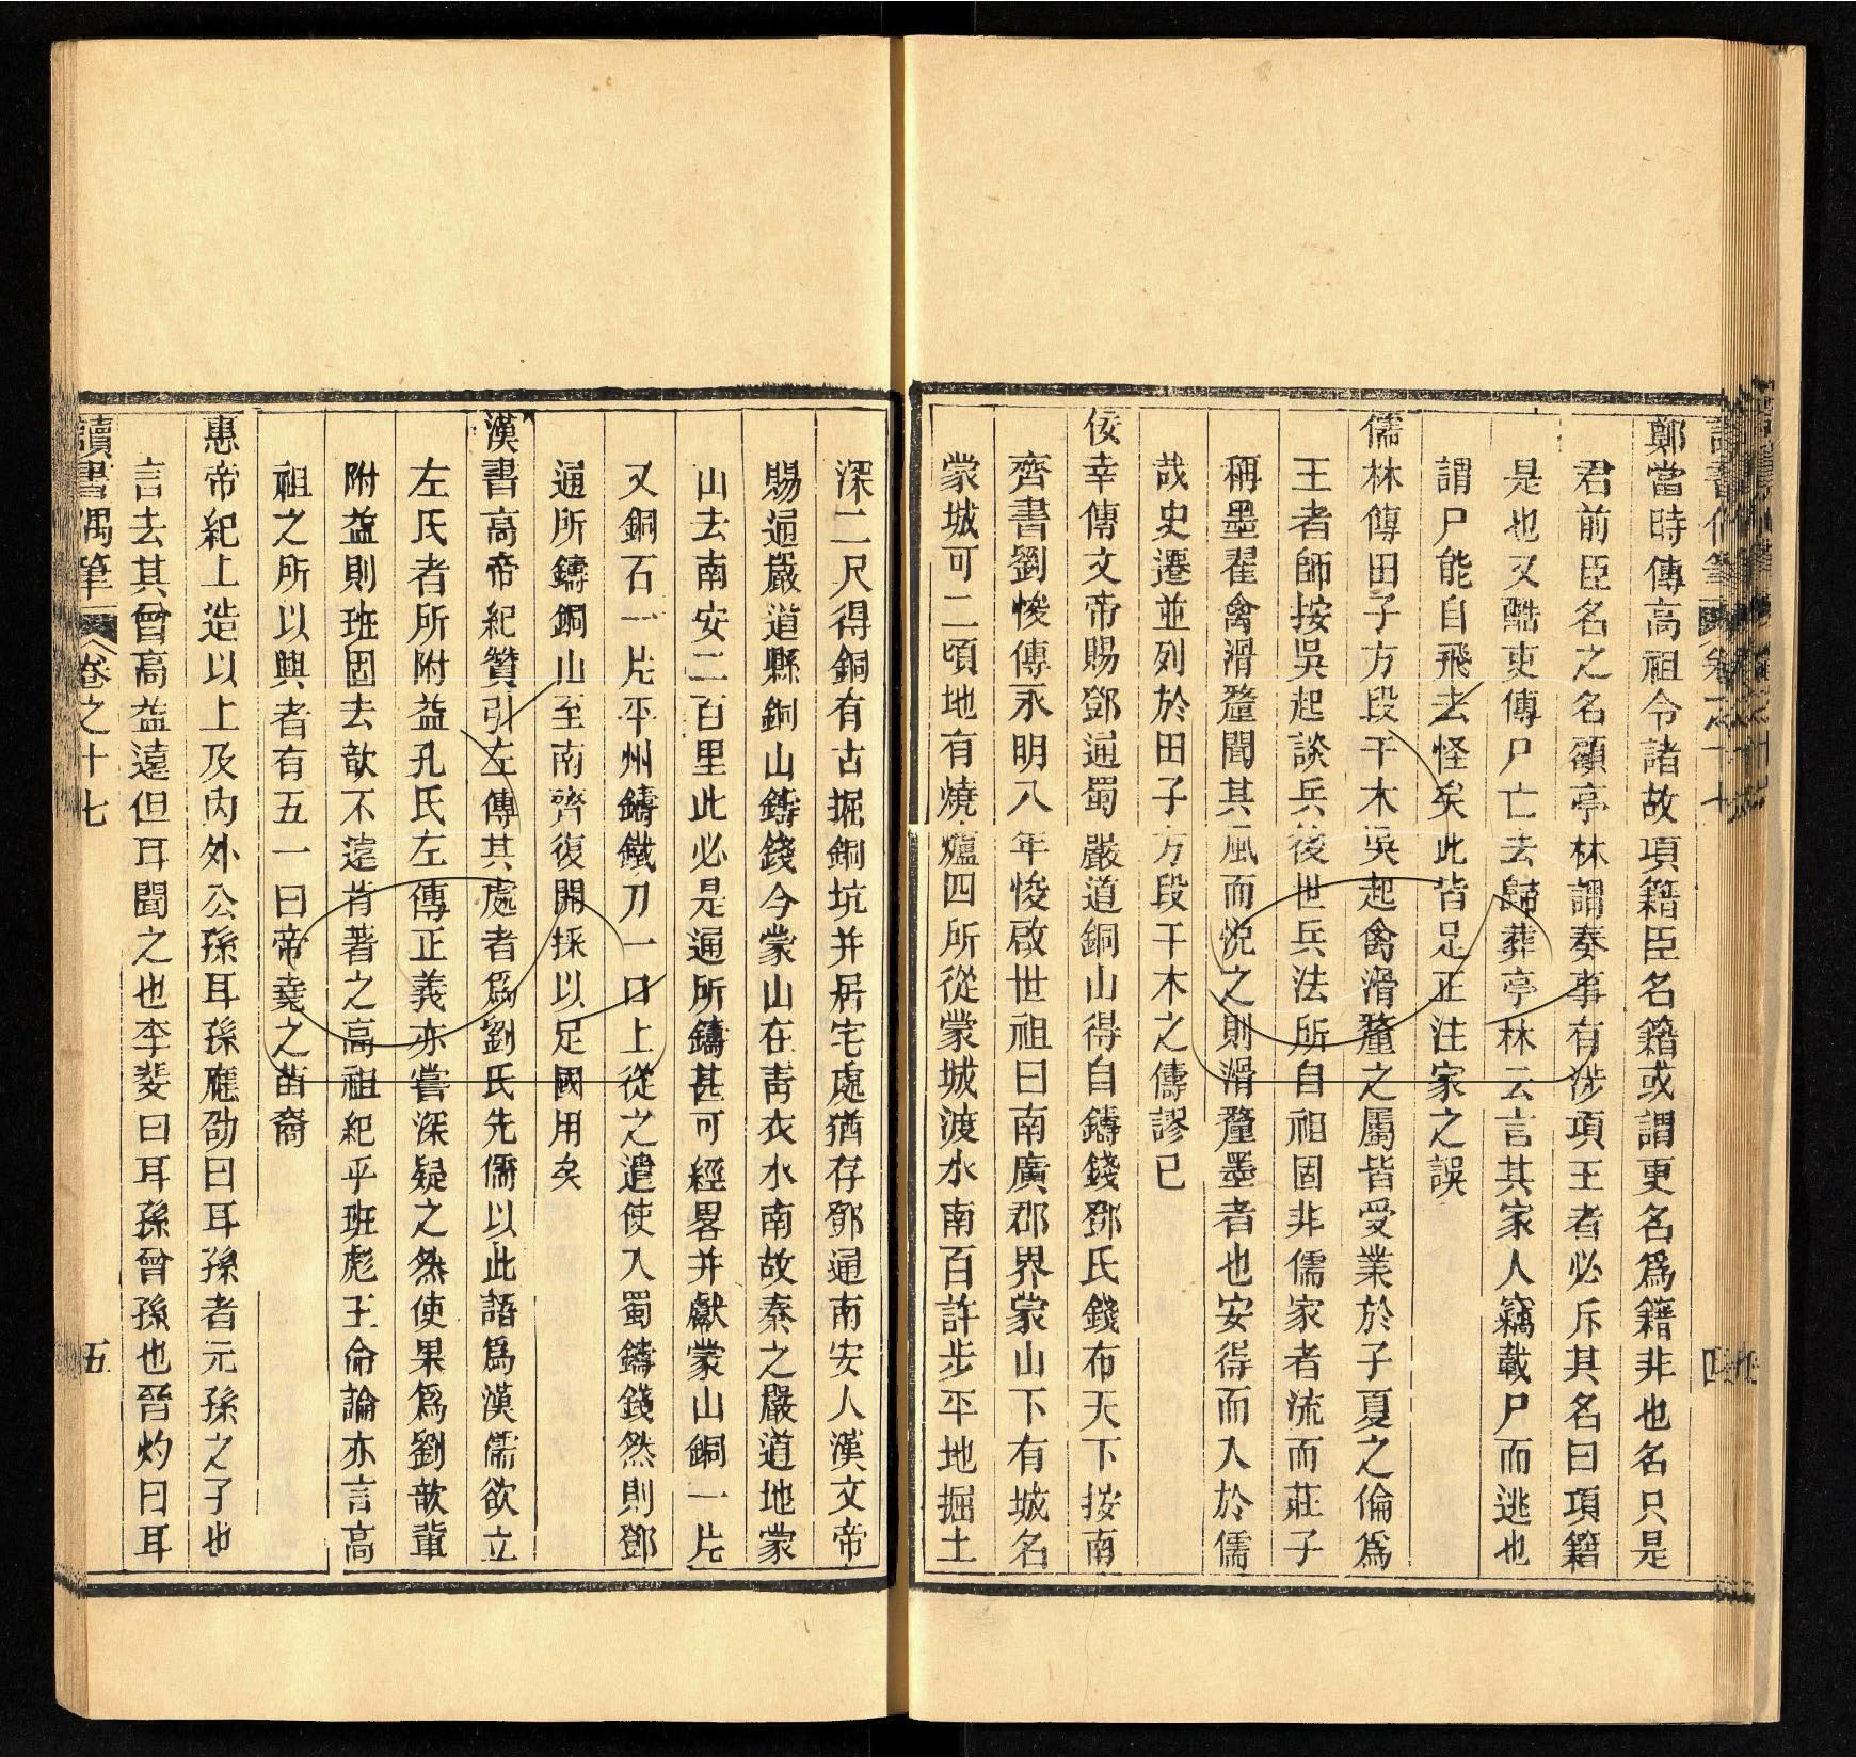 鄭當時傳高祖令諸故項籍臣名籍或謂更名爲籍非也名只是
君前臣名之名顧亭林謂奏事有涉項王者必斥其名曰項籍
是也又酷吏傳尸亡去歸葬亭林云言其家人竊載尸而逃也
謂尸能自飛去怪矣此皆足正注家之誤
儒林傳田子方段干木吳起禽滑釐之屬皆受業於子夏之倫爲
王者師按吳起談兵後世兵法所自祖固非儒家者流而莊子
稱墨翟禽滑釐聞其風而悅之則滑釐墨者也安得而入於儒
哉史遷並列於田子方段干木之傳謬已
佞幸傳文帝賜鄧通蜀嚴道銅山得自鑄錢鄧氏錢布天下按南
齊書劉悛傳永明八年悛啟世祖曰南廣郡界蒙山下有城名
蒙城可二頃地有燒爐四所從蒙城渡水南百許步平地掘土
深二尺得銅有古掘銅坑并居宅處猶存鄧通南安人漢文帝
賜通嚴道縣銅山鑄錢今蒙山在青衣水南故秦之嚴道地蒙
山去南安二百里此必是通所鑄甚可經畧并獻蒙山銅一片
又銅石一片平州鑄鐵刀一口上從之遣使入蜀鑄錢然則鄧
通所鑄銅山至南齊復開採以足國用矣
漢書高帝紀贊引左傳其處者爲劉氏先儒以此語爲漢儒欲立
左氏者所附益孔氏左傳正義亦嘗深疑之然使果爲劉歆輩
附益則班固去歆不遠肯著之高祖紀乎班彪王命論亦言高
祖之所以興者有五一曰帝堯之苗裔
惠帝紀上造以上及內外公孫耳孫應劭曰耳孫者元孫之子也
言去其曾高益遠但耳聞之也李斐曰耳孫曾孫也晉灼曰耳
讀書偶筆 卷之十七 五